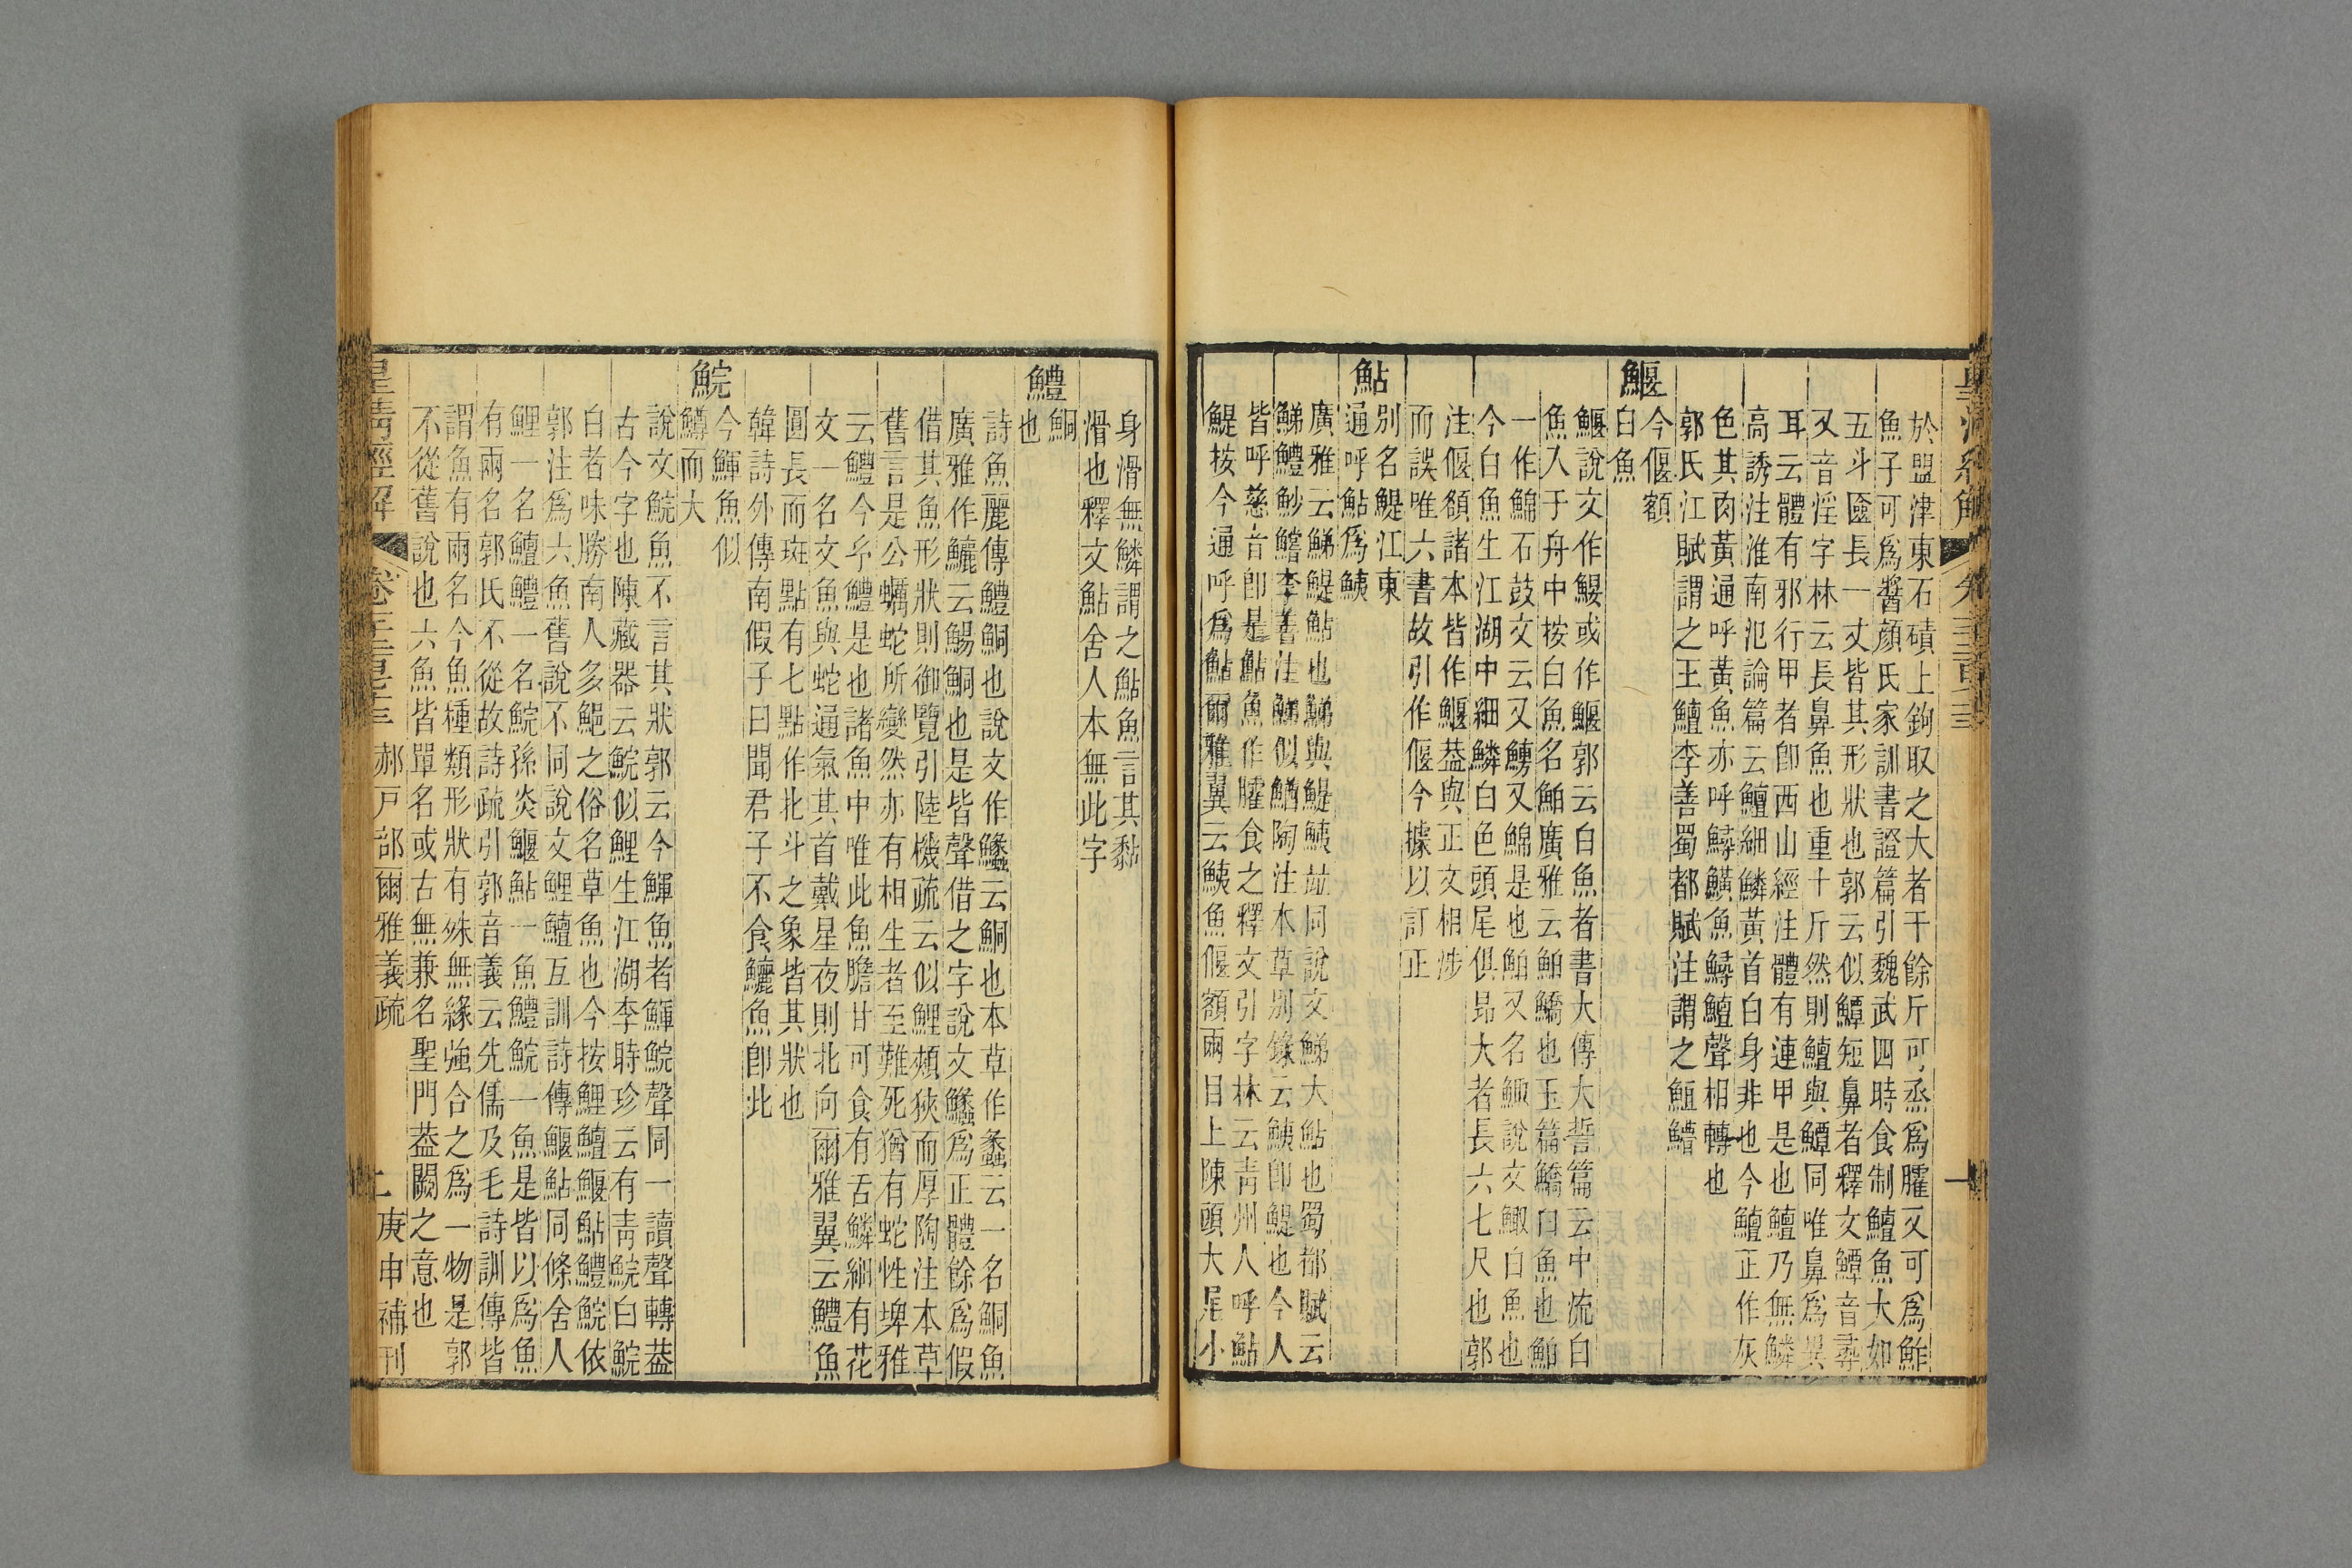 於盟津東石磧上鉤取之大者千餘斤可烝爲臛又可爲鮓
魚子可爲醬顏氏家訓書證篇引魏武四時食制鱣魚大如
五斗匳長一丈皆其形狀也郭云似鱏短鼻者釋文鱏音尋
又音淫字林云長鼻魚也重十斤然則鱣與鱏同唯鼻爲異
耳云體有邪行甲者卽西山經注體有連甲是也鱣乃無鱗
高誘注淮南氾論篇云鱣細鱗黃首白身非也今鱣正作灰
色其肉黃通呼黃魚亦呼鱘鱑魚鱘鱣聲相轉也
郭氏江賦謂之王鱣李善蜀都賦注謂之䱭䲛
鰋
今偃額
白魚
鰋說文作鰋或作鰋郭云白魚者書大傳大誓篇云中流白
魚入于舟中按白魚名鮊廣雅云鮊鱎也玉篇鱎白魚也鮊
一作鯿石鼓文云又鰟又鯿是也鮊又名鯫說文鯫白魚也
今白魚生江湖中細鱗白色頭尾俱昂大者長六七尺也郭
注偃額諸本皆作鰋葢與正文相涉
而誤唯六書故引作偃今據以訂正
鮎
別名鯷江東
通呼鮎爲鮧
廣雅云鮷鯷鮎也鮷與鯷鮧竝同說文鮷大鮎也蜀都賦云
鮷鱧魦鱨李善注鮷似鰌陶注本草別錄云鮧卽鯷也今人
皆呼慈音卽是鮎魚作臛食之釋文引字林云靑州人呼鮎
鯷按今通呼爲鮎爾雅翼云鮧魚偃額兩目上陳頭大尾小
身滑無鱗謂之鮎魚言其黏
滑也釋文鮎舍人本無此字
鱧
鮦
也
詩魚麗傳鱧鮦也說文作鱶云鮦也本草作蠡云一名鮦魚
廣雅作鱺云鰑鮦也是皆聲借之字說文鱶爲正體餘爲假
借其魚形狀則御覽引陸機疏云似鯉頰狹而厚陶注本草
舊言是公蠣蛇所變然亦有相生者至難死猶有蛇性埤雅
云鱧今玄鱧是也諸魚中唯此魚膽甘可食有舌鱗細有花
文一名文魚與蛇通氣其首戴星夜則北向爾雅翼云鱧魚
圓長而斑點有七點作北斗之象皆其狀也
韓詩外傳南假子曰聞君子不食鱺魚卽此
鯇
今鯶魚似
鱒而大
說文鯇魚不言其狀郭云今鯶魚者鯶鯇聲同一讀聲轉葢
古今字也陳藏器云鯇似鯉生江湖李時珍云有靑鯇白鯇
白者味勝南人多鮑之俗名草魚也今按鯉鱣鰋鮎鱧鯇依
郭注爲六魚舊說不同說文鯉鱣互訓詩傳鰋鮎同條舍人
鯉一名鱣鱧一名鯇孫炎鰋鮎一魚鱧鯇一魚是皆以爲魚
有兩名郭氏不從故詩疏引郭音義云先儒及毛詩訓傳皆
謂魚有兩名今魚種類形狀有殊無緣強合之爲一物是郭
不從舊說也六魚皆單名或古無兼名聖門葢闕之意也
皇淸經解
郝戸部爾雅義疏
庚申補刊